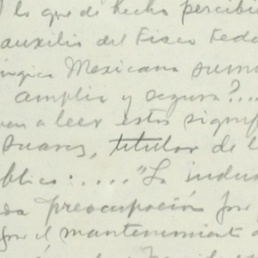 lo que de hecho percibi
auxilio del Fisco Fede
úrgica Mexicana sumi
amplia y segura?...
ven a leer estos signif
Suarez, titular de l
blico:....."La indus
da preocupación por
por el mantenimiento d